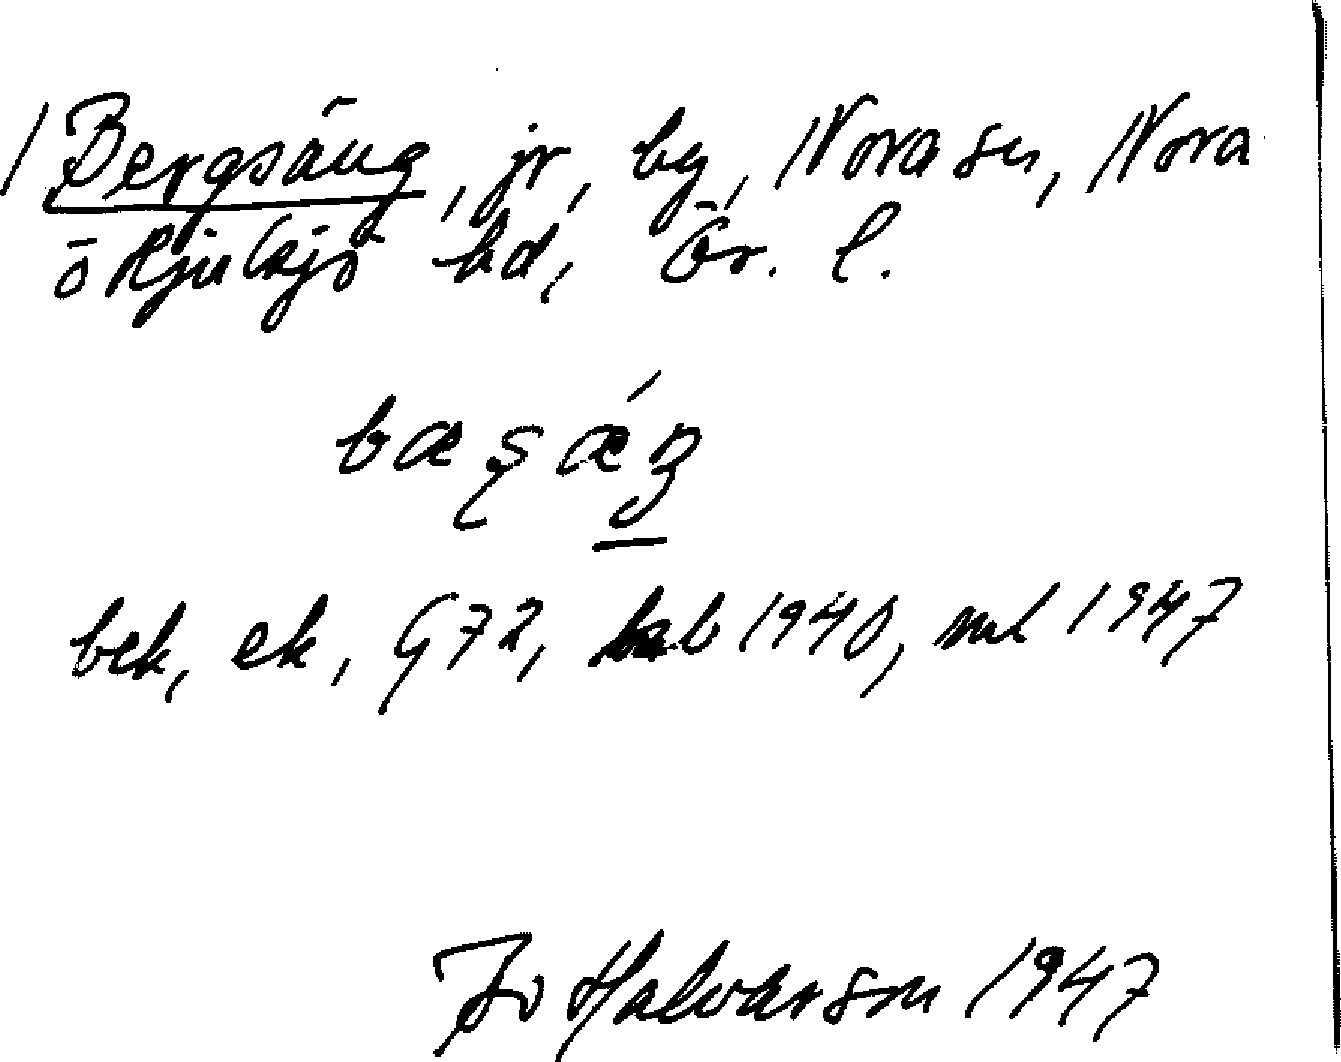 / Bergsäng, jr, by, Nora sn, Nora
o Hjulsjö bd, Ör. l.
bek, ek, G72, lab 1940, ml 1947
Iv Halvarson 1947